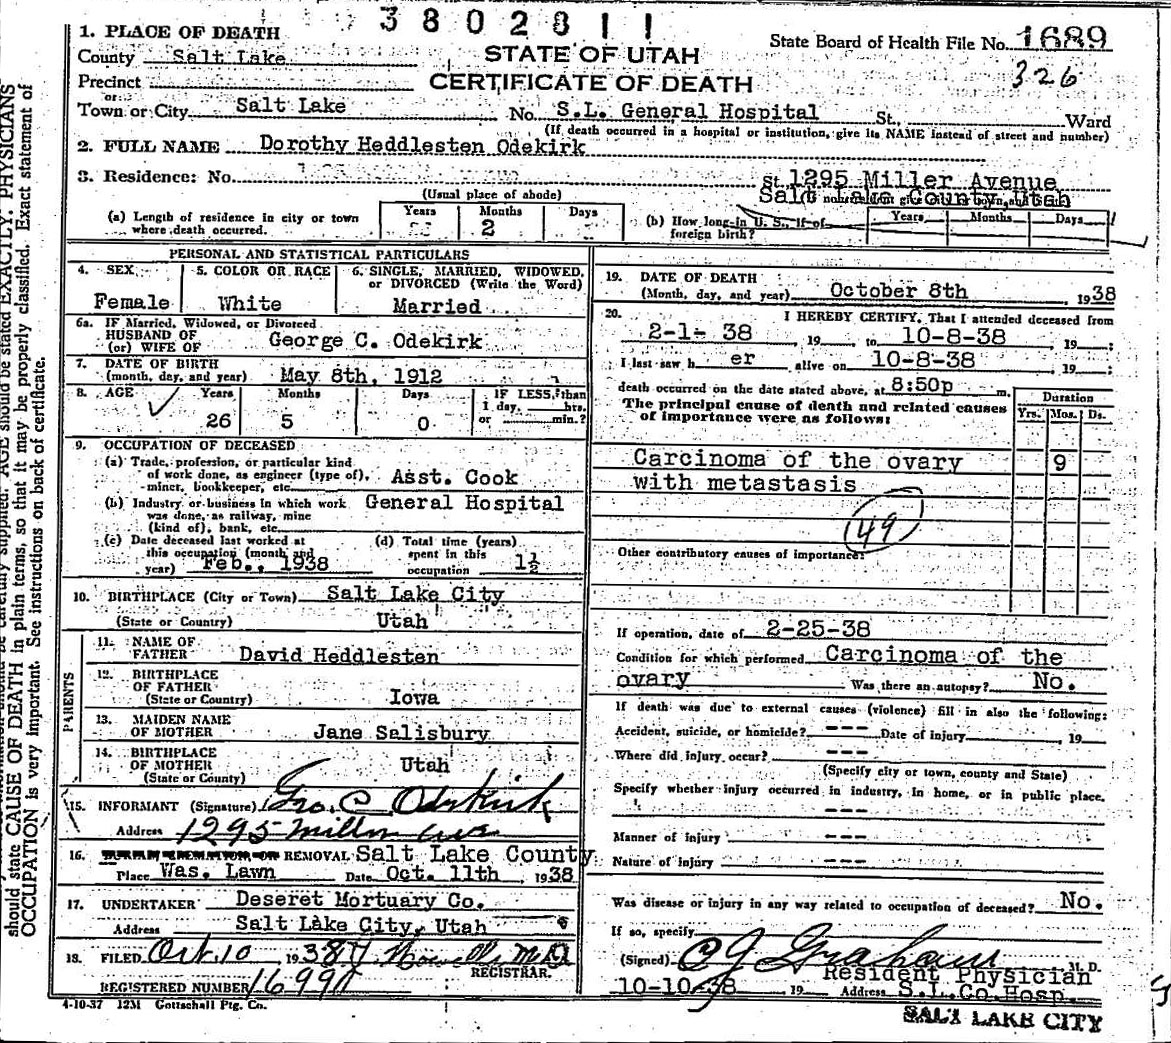 3802011
1. PLACE OF DEATH
County Salt Lake
STATE OF UTAH
State Board of Health File No. 1689
326
Precinct
CERTIFICATE OF DEATH
or
Town or City Salt Lake No. S.L. General Hospital St., Ward
(If death occurred in a hospital or institution, give its NAME instead of street and number)
2. FULL NAME Dorothy Heddlesten Odekirk
3. Residence: No. St. 1295 Miller Avenue
(Usual place of abode) Salt Lake County Utah
(a) Length of residence in city or town where death occurred. Years Months 2 Days
(b) How long in U. S., if of foreign birth? Years Months Days
PERSONAL AND STATISTICAL PARTICULARS
4. SEX Female
5. COLOR OR RACE White
6. SINGLE, MARRIED, WIDOWED, or DIVORCED (Write the Word) Married
6a. IF Married, Widowed, or Divorced
HUSBAND OF
(or) WIFE OF George C. Odekirk
7. DATE OF BIRTH
(month, day, and year) May 8th, 1912
8. AGE Years 26 Months 5 Days 0 IF LESS than 1 day, hrs. or min.?
9. OCCUPATION OF DECEASED
(a) Trade, profession, or particular kind
of work done, as engineer (type of), Asst. Cook
miner, bookkeeper, etc.
(b) Industry or business in which work General Hospital
was done, as railway, mine
(kind of), bank, etc.
(c) Date deceased last worked at
this occupation (month and
year) Feb., 1938
(d) Total time (years)
spent in this
occupation 1½
10. BIRTHPLACE (City or Town) Salt Lake City
(State or Country) Utah
PARENTS
11. NAME OF
FATHER David Heddlesten
12. BIRTHPLACE
OF FATHER
(State or Country) Iowa
13. MAIDEN NAME
OF MOTHER Jane Salisbury
14. BIRTHPLACE
OF MOTHER Utah
(State or County)
15. INFORMANT (Signature) Geo. C Odekirk
Address 1295 Miller Ave
16. REMOVAL Salt Lake County
Place Was. Lawn Date Oct. 11th 1938
17. UNDERTAKER Deseret Mortuary Co.
Address Salt Lake City, Utah
18. FILED Oct. 10 1938 M.D.
REGISTRAR.
REGISTERED NUMBER
4-10-37 12M Gottschall Ptg. Co.
19. DATE OF DEATH
(Month, day, and year) October 8th 1938
20. I HEREBY CERTIFY, That I attended deceased from
2-1- 38 , 19 to 10-8-38 , 19 ;
I last saw h er alive on 10-8-38 , 19 ;
death occurred on the date stated above, at 8:50p m.
The principal cause of death and related causes
of importance were as follows:
Duration
Yrs. Mos. Ds.
Carcinoma of the ovary 9
with metastasis
49
Other contributory causes of importance:
If operation, date of 2-25-38
Condition for which performed Carcinoma of the
ovary Was there an autopsy? No.
If death was due to external causes (violence) fill in also the following:
Accident, suicide, or homicide? --- Date of injury , 19
Where did injury occur? ---
(Specify city or town, county and State)
Specify whether injury occurred in industry, in home, or in public place.
---
Manner of injury ---
Nature of injury ---
Was disease or injury in any way related to occupation of deceased? No.
If so, specify
(Signed) C J Graham M. D.
Resident Physician
10-10-38 19 Address S.L.Co.Hosp.
SALT LAKE CITY
AGE should be stated EXACTLY. PHYSICIANS
should state CAUSE OF DEATH in plain terms, so that it may be properly classified. Exact statement of
OCCUPATION is very important. See instructions on back of certificate.